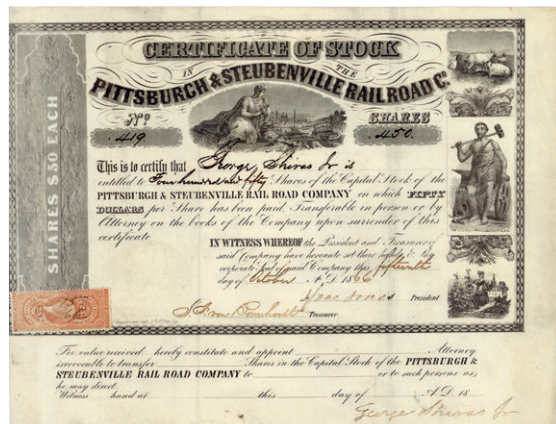 CERTIFICATE OF STOCK
IN THE
PITTSBURGH & STEUBENVILLE RAIL ROAD Co.
No. SHARES
419 450
SHARES $50 EACH
This is to certify that George Shiras Jr is
entitled to Four hundred and fifty Shares of the Capital Stock of the
PITTSBURGH & STEUBENVILLE RAIL ROAD COMPANY on which FIFTY
DOLLARS per Share has been paid. Transferable in person or by
Attorney on the books of the Company upon surrender of this
certificate
IN WITNESS WHEREOF the President and Treasurer of
said Company have hereunto set their hands & the
corporate seal of said Company this fifteenth
day of October A.D. 1866
Isaac Jones President
Treasurer
For value received hereby constitute and appoint Attorney
irrevocable to transfer Shares in the Capital Stock of the PITTSBURGH &
STEUBENVILLE RAIL ROAD COMPANY to or to such persons as
he may direct.
Witness hand at this day of A.D. 18
George Shiras Jr